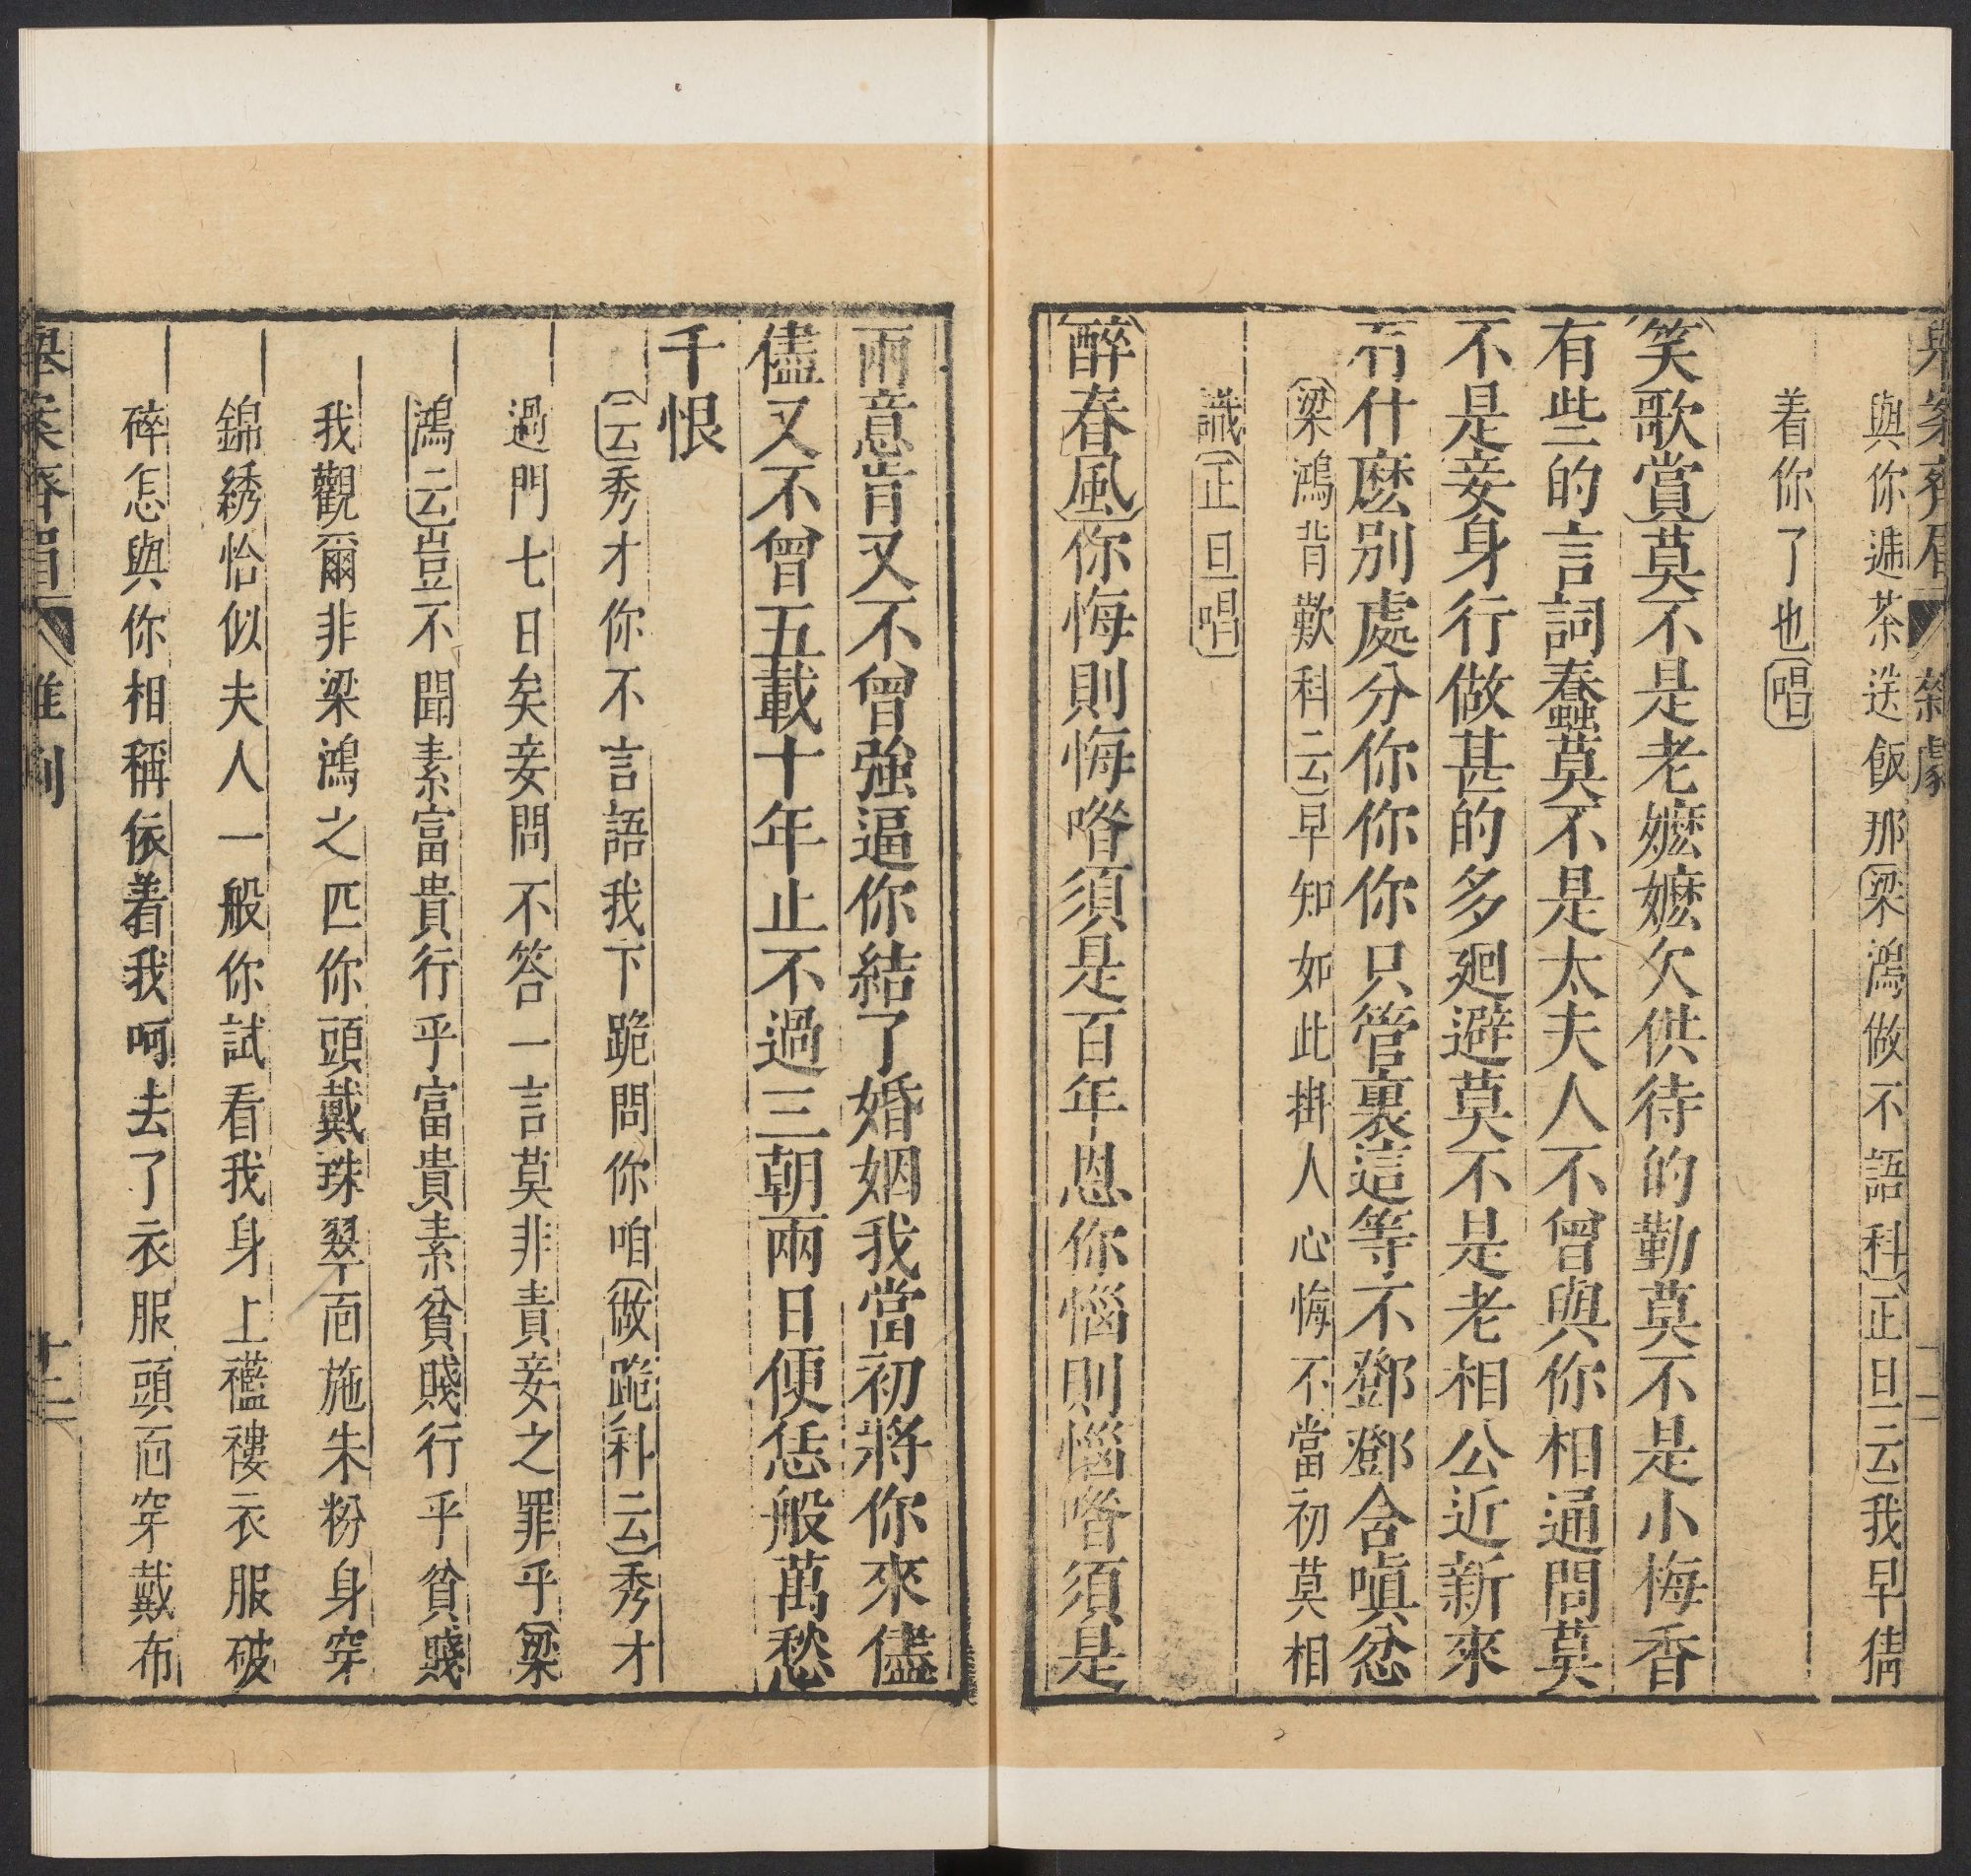 舉案齊眉 雜劇
與你遞茶送飯那(梁鴻做不語科)(正旦云)我早猜
着你了也(唱)
(笑歌賞)莫不是老嬷嬷欠供待的勤莫不是小梅香
有些的言詞蠢莫不是太夫人不曾與你相通問莫
不是妾身行做甚的多廻避莫不是老相公近新來
有什麽別處分你你你只管裏這等不鄧鄧含嗔忿
(梁鴻背歎科云)早知如此掛人心悔不當初莫相
識(正旦唱)
(醉春風)你悔則悔喒須是百年恩你惱則惱喒須是
兩意肯又不曾強逼你結了婚姻我當初將你來儘
儘又不曾五載十年止不過三朝兩日便恁般萬愁
千恨
(云)秀才你不言語我下跪問你咱(做跪科云)秀才
過門七日矣妾問不答一言莫非責妾之罪乎(梁
鴻云)豈不聞素富貴行乎富貴素貧賤行乎貧賤
我觀爾非梁鴻之匹你頭戴珠翠面施朱粉身穿
錦綉恰似夫人一般你試看我身上襤褸衣服破
碎怎與你相稱依着我呵去了衣服頭面穿戴布
舉案齊眉 雜劇 十二